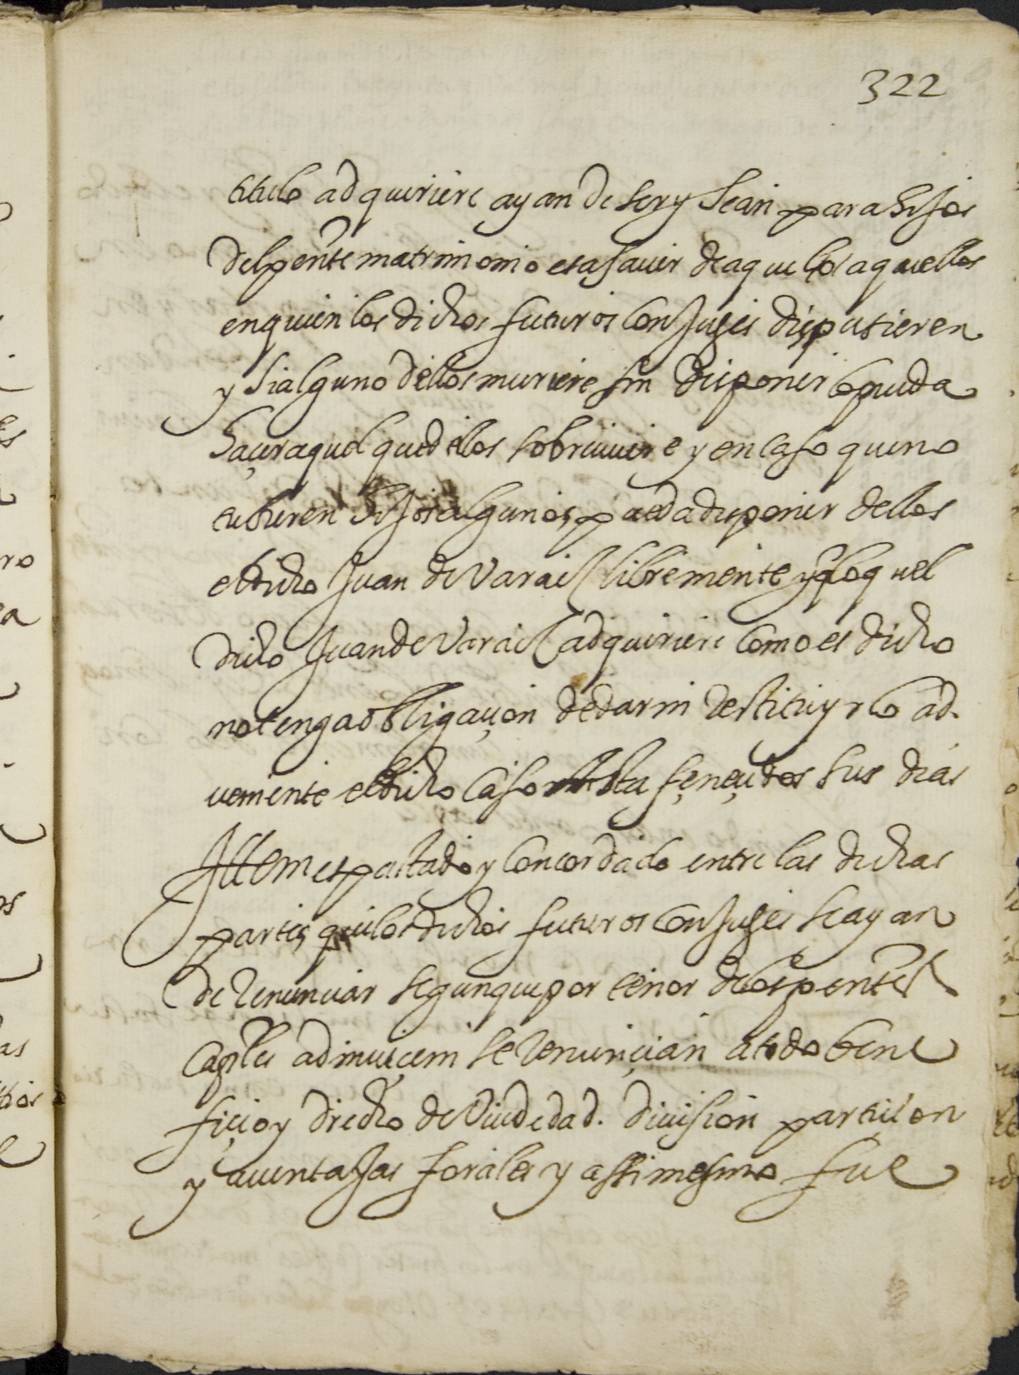 322
titulo adquiriere ayan de ser y sean para hijos
del pente matrimonio es a sauer de aquel o aquellos
en quien los dichos futuros conjuges dispusieren
y si alguno dellos muriere sin disponer lo pueda
haçer aquel que dellos sobreuiuire y en caso que no
tubieren hijos algunos pueda disponer dellos
el dicho Juan de Varaiz libremente y q lo quel
dicho Juan de Varaiz adquiriere como es dicho
no tenga obligaçion de dar ni restituyrlo ad-
ueniente el dicho caso hasta feneçidos sus dias
Ittem es pactado y concordado entre las dichas
partes que los dichos futuros conjuges se ayan
de renunciar segun que por tenor de los pentes
caples adinuiçem se renunçian a todo bene
fiçio y drecho de Viudedad. diuision particion
y auentajas forales y assimesmo fue